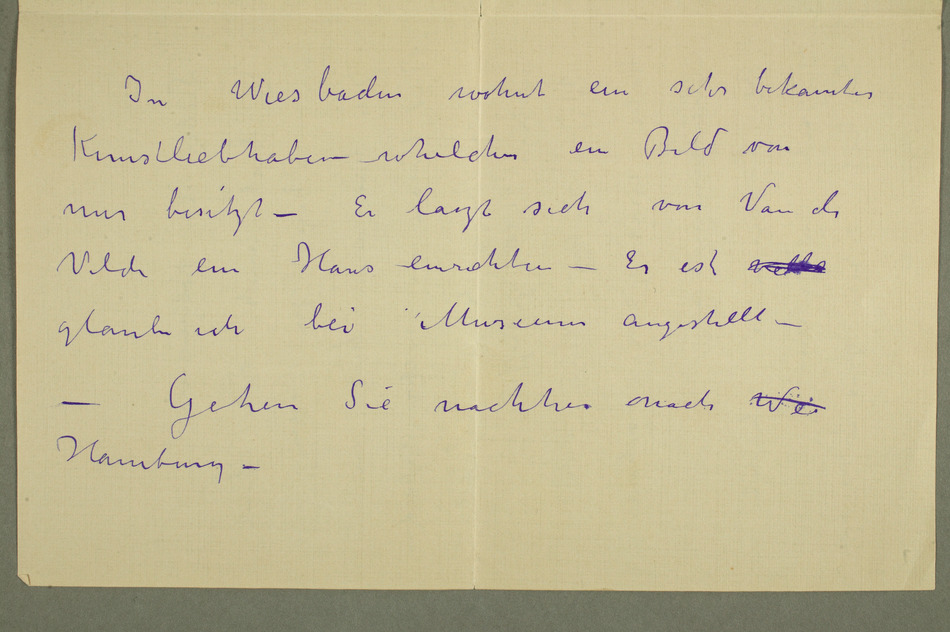 In Wiesbaden wohnt ein sehr bekannter
Kunstliebhaber whelcher ein Bild von
mir besitzt – Er laszt sich von Van de
Velde ein Haus einrichten – Er ist
glaube ich bei Museum angestellt –
– Gehen Sie nachher nach Wie
Hamburg –